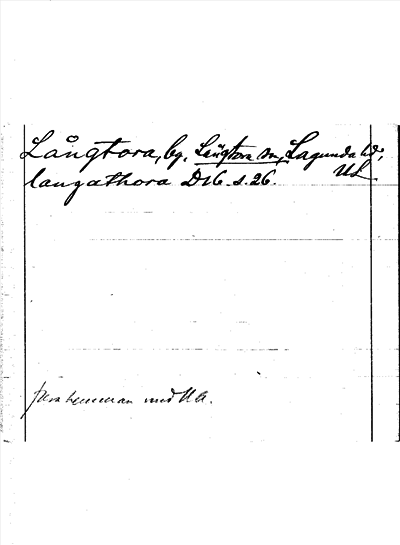 Långtora, by, Långtora sn, Lagunda hd,
Ul
langathora D16 s. 26.
med